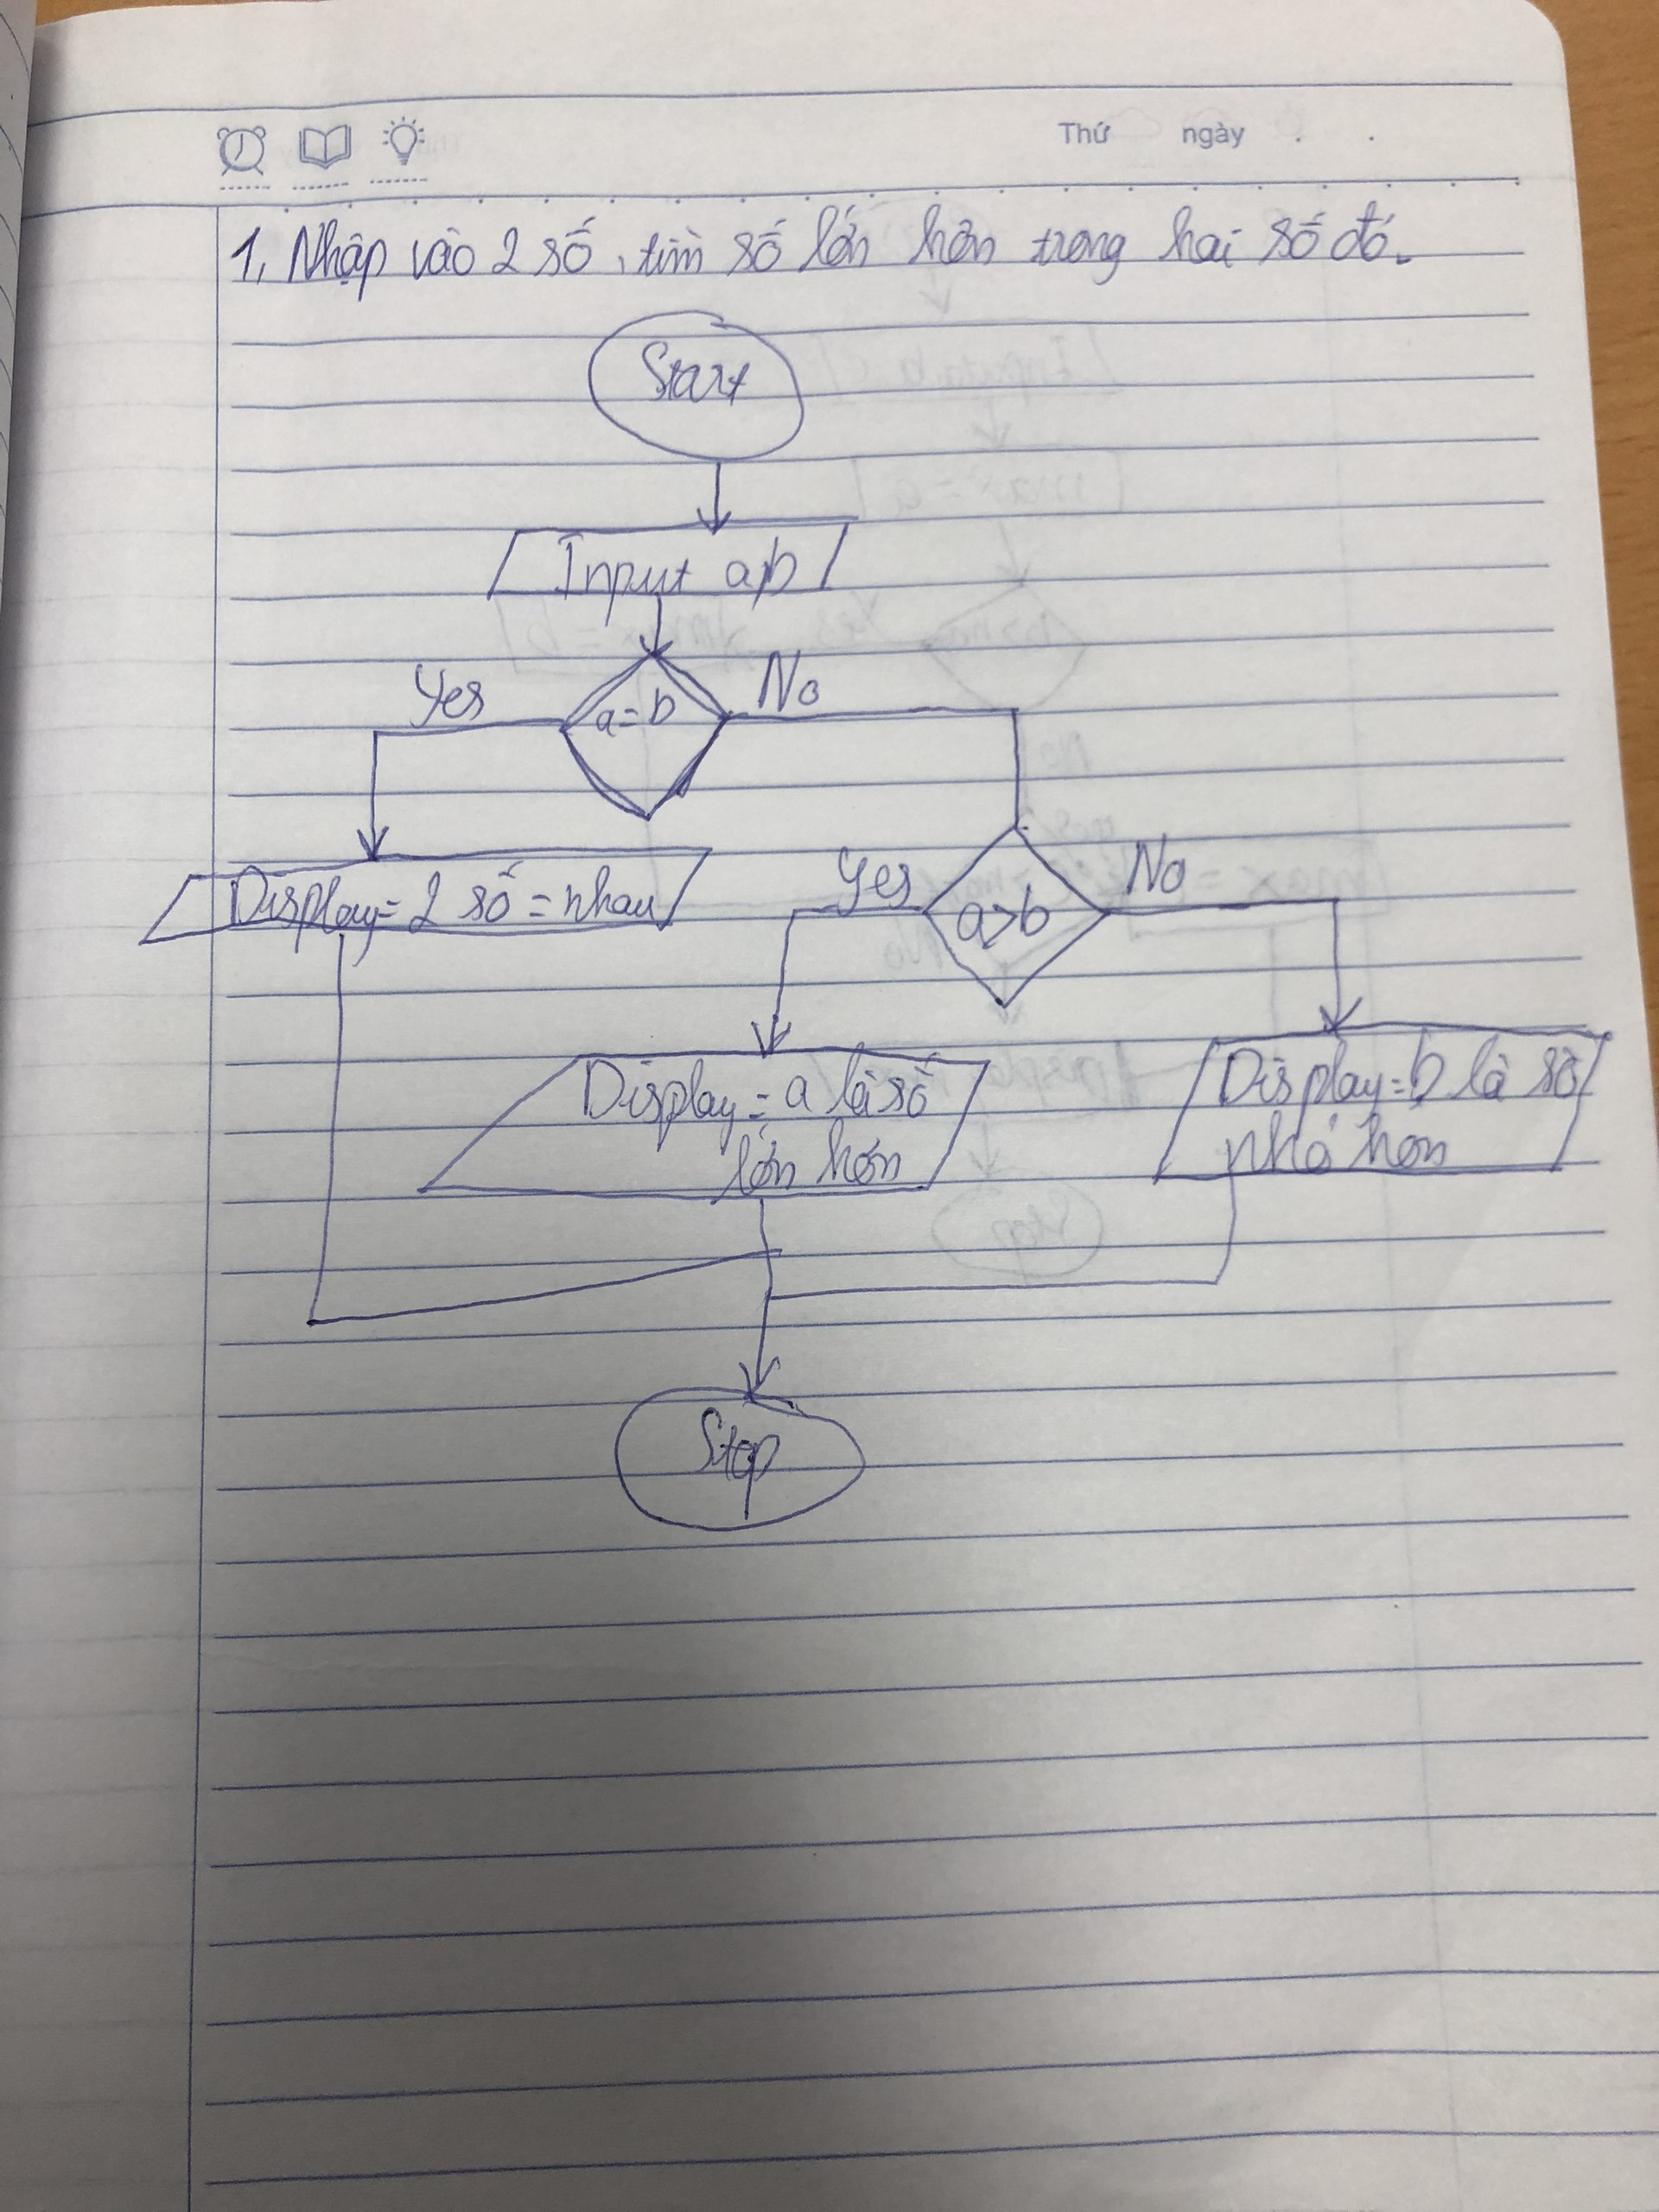 Thứ ngày . .
1, Nhập vào 2 số, tìm số lớn hơn trong hai số đó.
Start
Input a,b
Yes a=b No
Display= 2 số = nhau
Yes a>b No
Display= a là số
lớn hơn
Display= b là số
nhỏ hơn
Stop